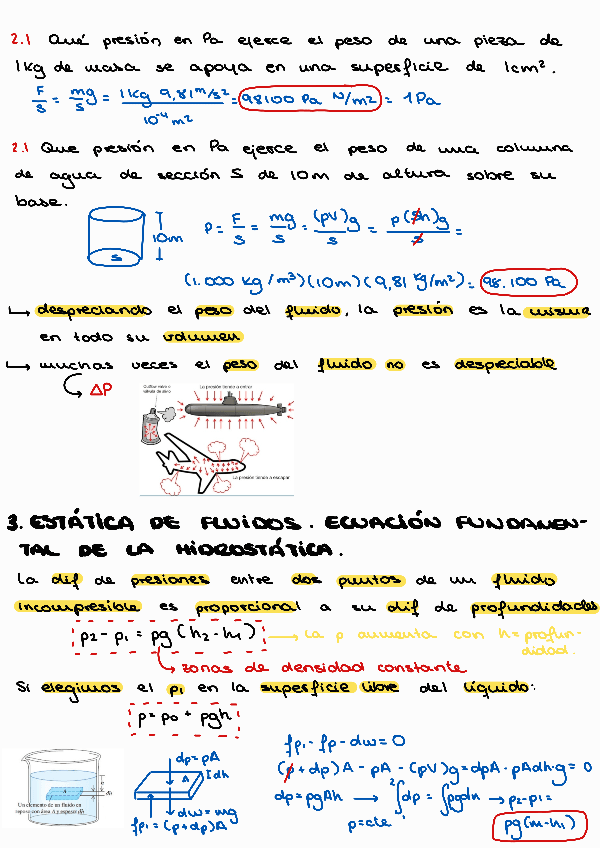 2.1 Qué presión en Pa ejerce el peso de una pieza de
1kg de masa se apoya en una superficie de 1cm².
F/S = mg/S = 1kg 9,81 m/s² / 10⁻⁴ m² = 98100 Pa N/m² = 1Pa
2.1 Que presión en Pa ejerce el peso de una columna
de agua de sección S de 10m de altura sobre su
base.
10m
S
P = F/S = mg/S = (ρV)g/S = ρ(Sh)g/S =
(1.000 kg/m³)(10m)(9,81 kg/m²) = 98.100 Pa
↳ despreciando el peso del fluido, la presión es la misma
en todo su volumen
↳ muchas veces el peso del fluido no es despreciable
↳ ΔP
La presión tiende a entrar
La presión tiende a escapar
3. ESTÁTICA DE FLUIDOS. ECUACIÓN FUNDAMEN-
TAL DE LA HIDROSTÁTICA.
La dif de presiones entre dos puntos de un fluido
incompresible es proporcional a su dif de profundidades
p2 - p1 = ρg(h2 - h1) → La p aumenta con h = profun-
didad.
↳ zonas de densidad constante
Si elegimos el p1 en la superficie libre del líquido:
p = p0 + ρgh
Un elemento de un fluido en
reposo con área A y espesor dh
dp = pA
A
dh
dw = mg
fp1 = (p+dp)A
fp1 - fp - dw = 0
(p + dp)A - pA - (ρV)g = dpA - ρAdh·g = 0
dp = ρgAh → ²∫dp = ∫ρgdh → p2 - p1 =
ρ = cte
ρg(h2 - h1)